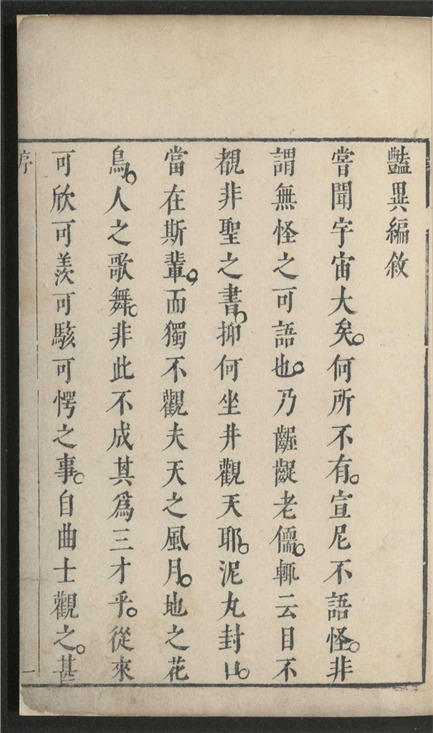 豔異編敘
嘗聞宇宙大矣。何所不有。宣尼不語怪。非
謂無怪之可語也。乃齷齪老儒。輒云目不
覩非聖之書。抑何坐井觀天耶。泥丸封口。
當在斯輩。而獨不觀夫天之風月。地之花
鳥。人之歌舞。非此不成其爲三才乎。從來
可欣可羨可駭可愕之事。自曲士觀之。甚
序
一